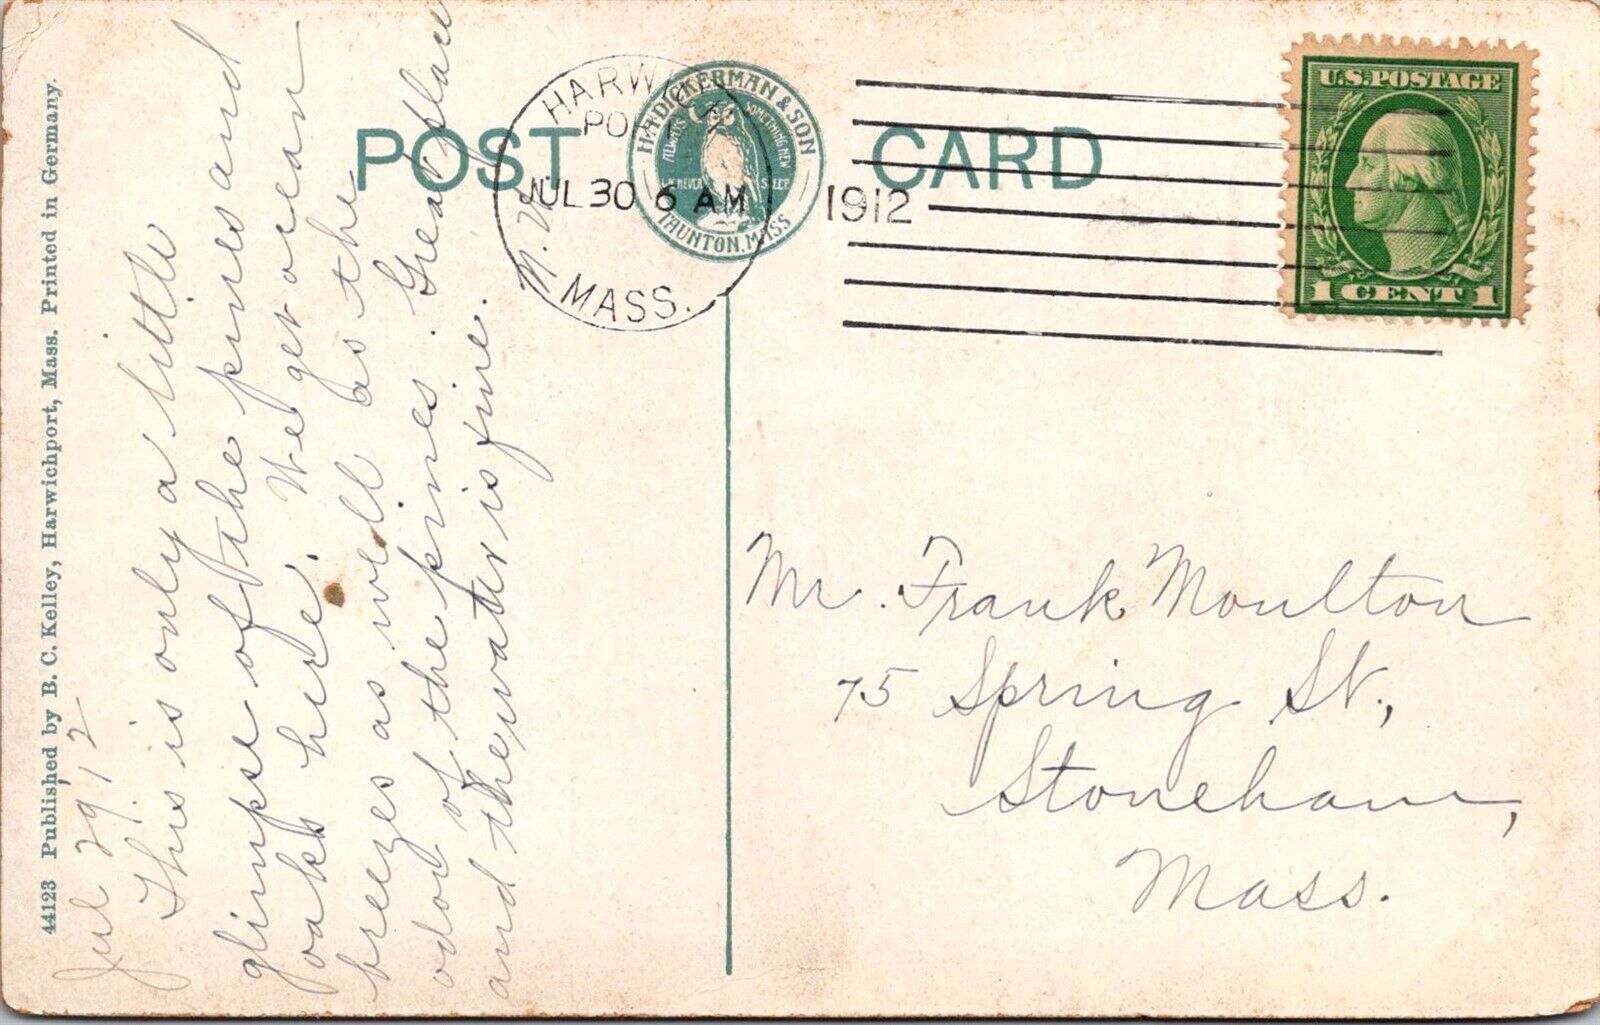 44123 Published by B. C. Kelley, Harwichport, Mass. Printed in Germany.
Jul 29, 12
This is only a little
glimpse of the pines and
oaks here. We get ocean
breezes as well as the
odor of the pines. Great place
and the water is fine.
M. W.
POST CARD
H.A. DICKERMAN & SON
ALWAYS SOMETHING NEW
WE NEVER SLEEP
TAUNTON, MASS
HARWICH
PORT
JUL 30 6 AM
1912
MASS.
U.S. POSTAGE
1 CENT 1
Mr. Frank Moulton
75 Spring St.,
Stoneham,
Mass.